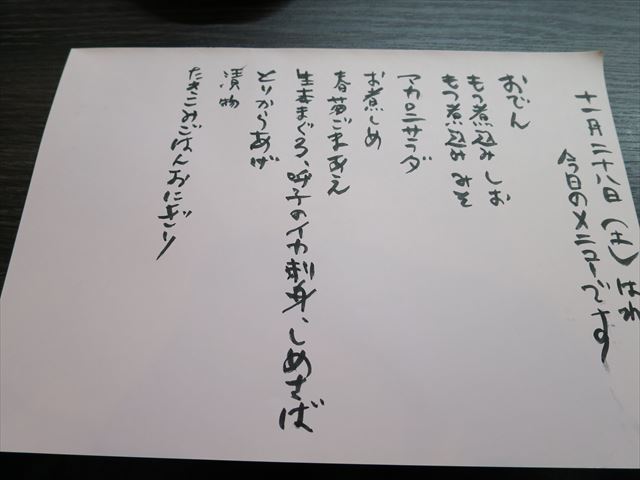 十一月二十八日(土)はれ
今日のメニューです
おでん
もつ煮込み しお
もつ煮込み みそ
マカロニサラダ
お煮しめ
春菊ごまあえ
生本まぐろ、呼子のイカ刺身、しめさば
とりからあげ
漬物
たきこみごはんおにぎり